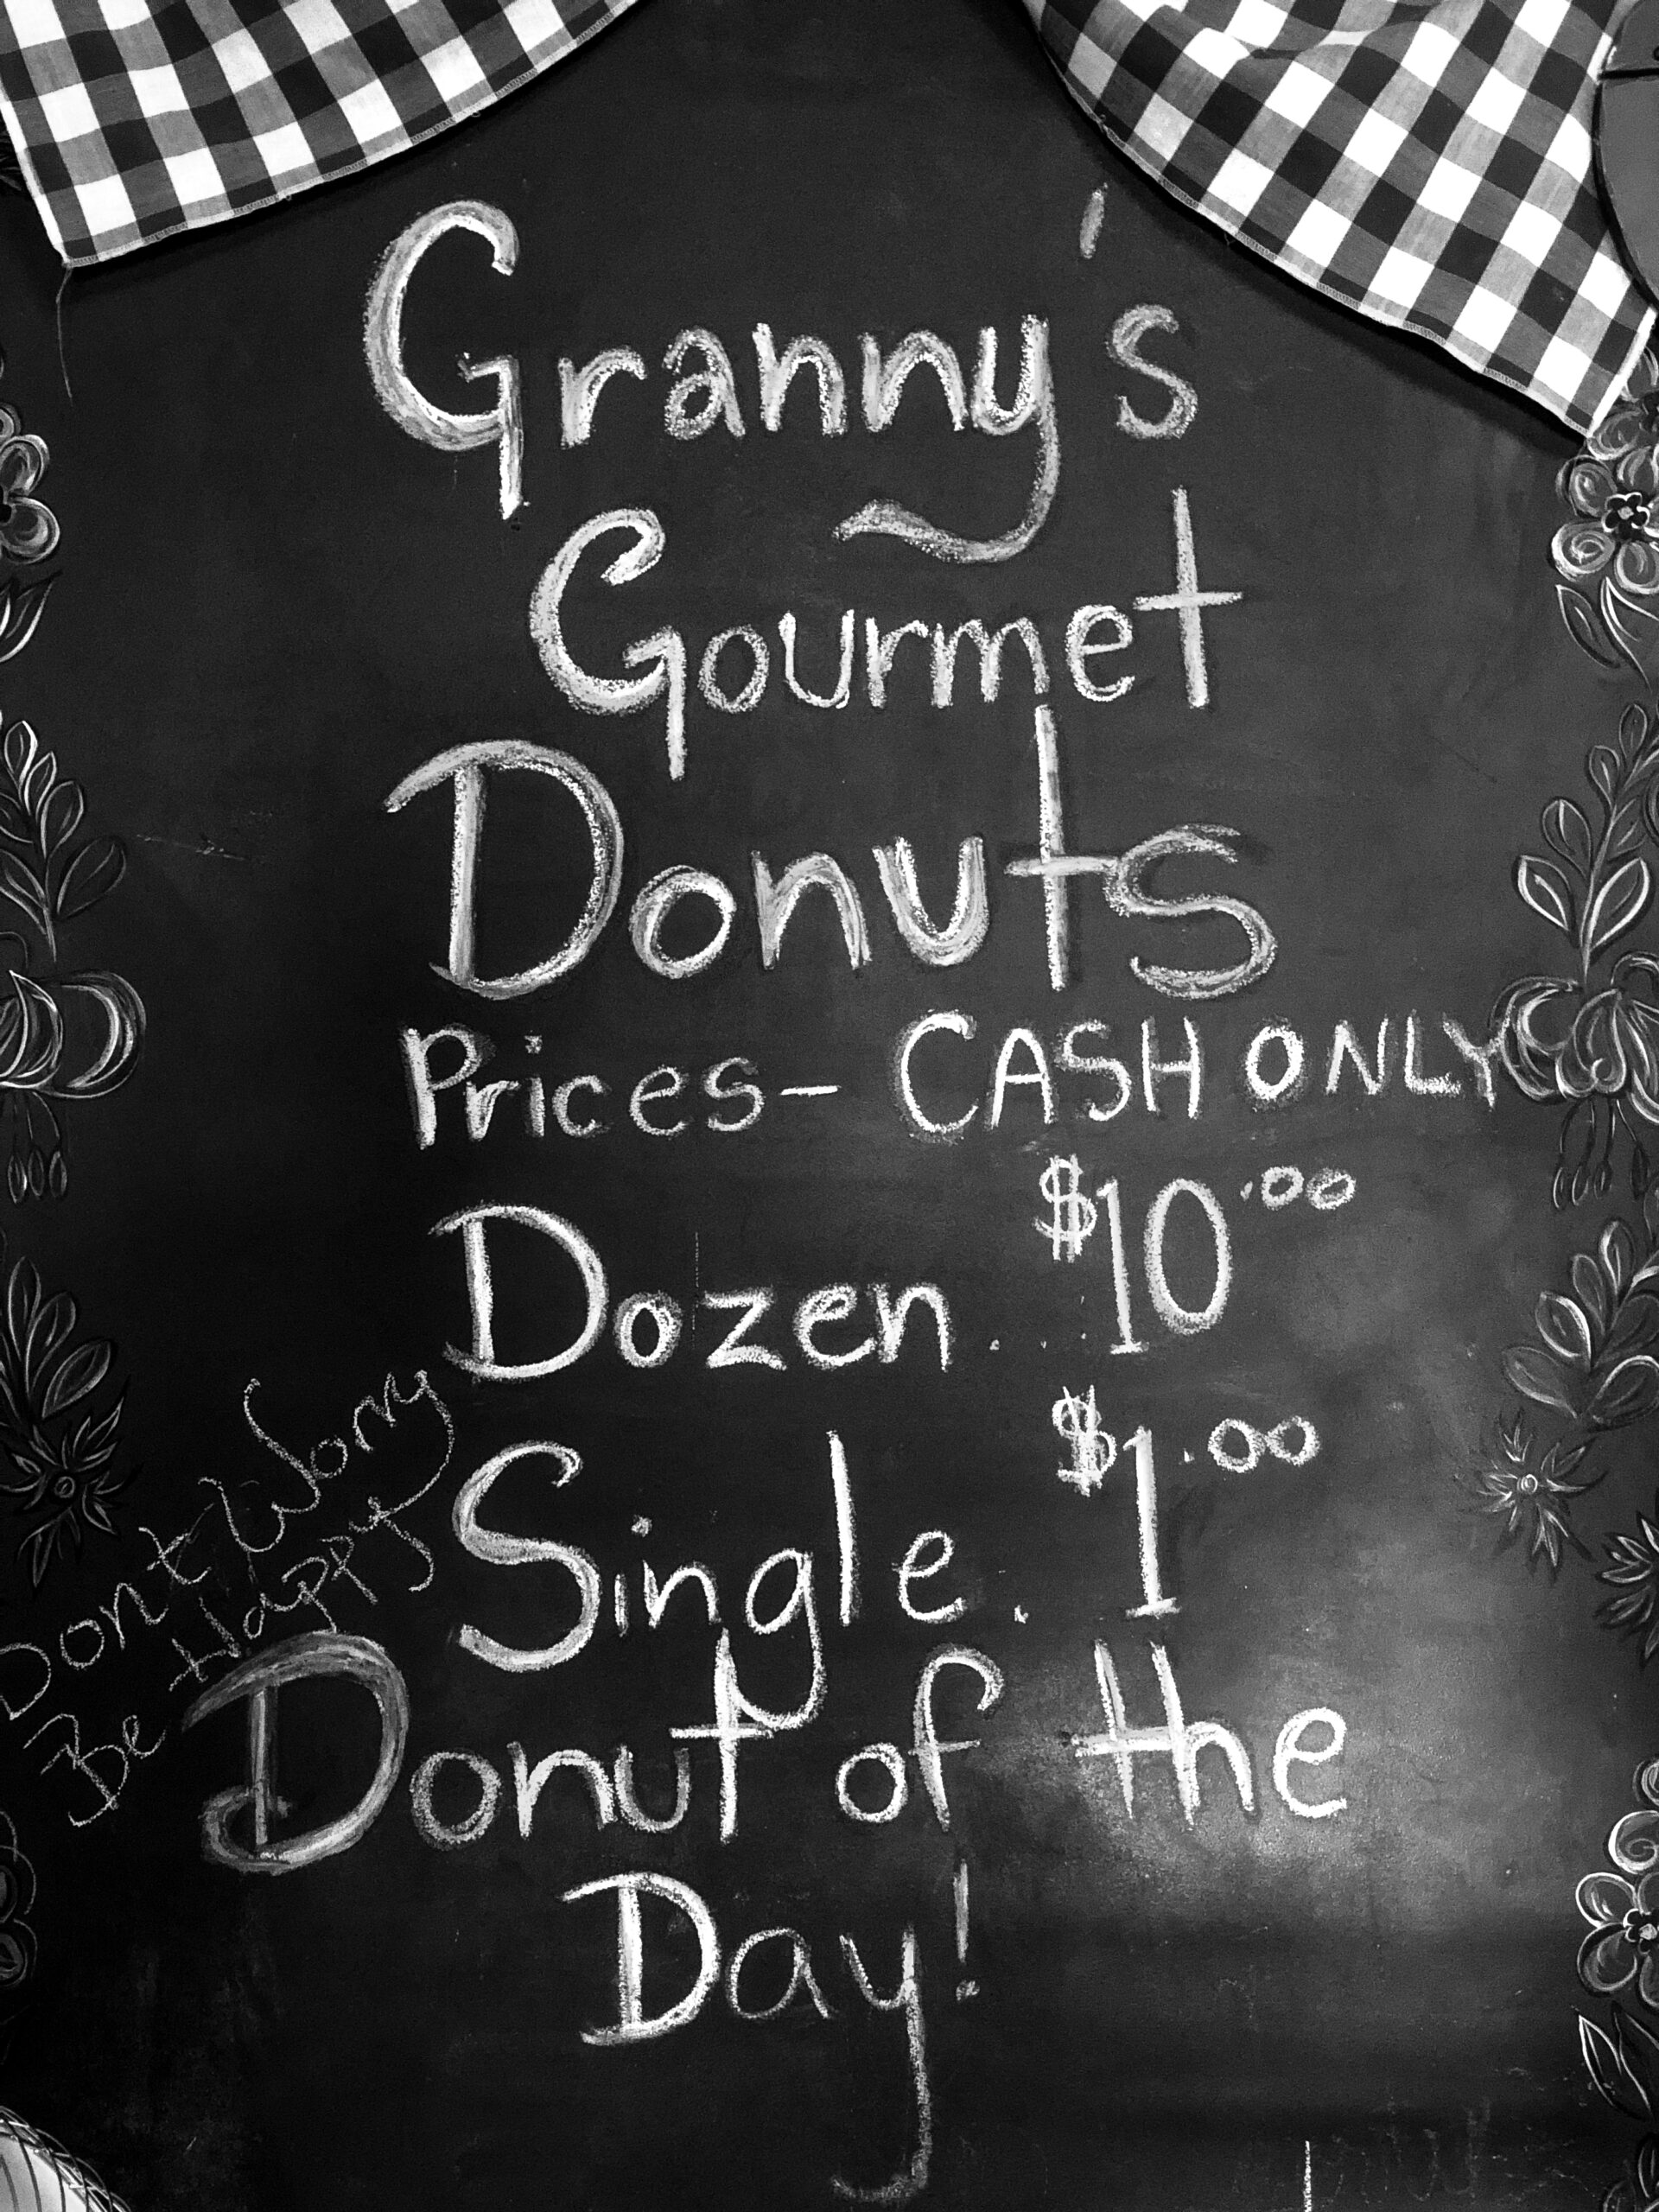 Granny's
Gourmet
Donuts
Prices- CASH ONLY
Dozen... $10.00
Single. $1.00
Dont Worry
Be Happy
Donut of the
Day!